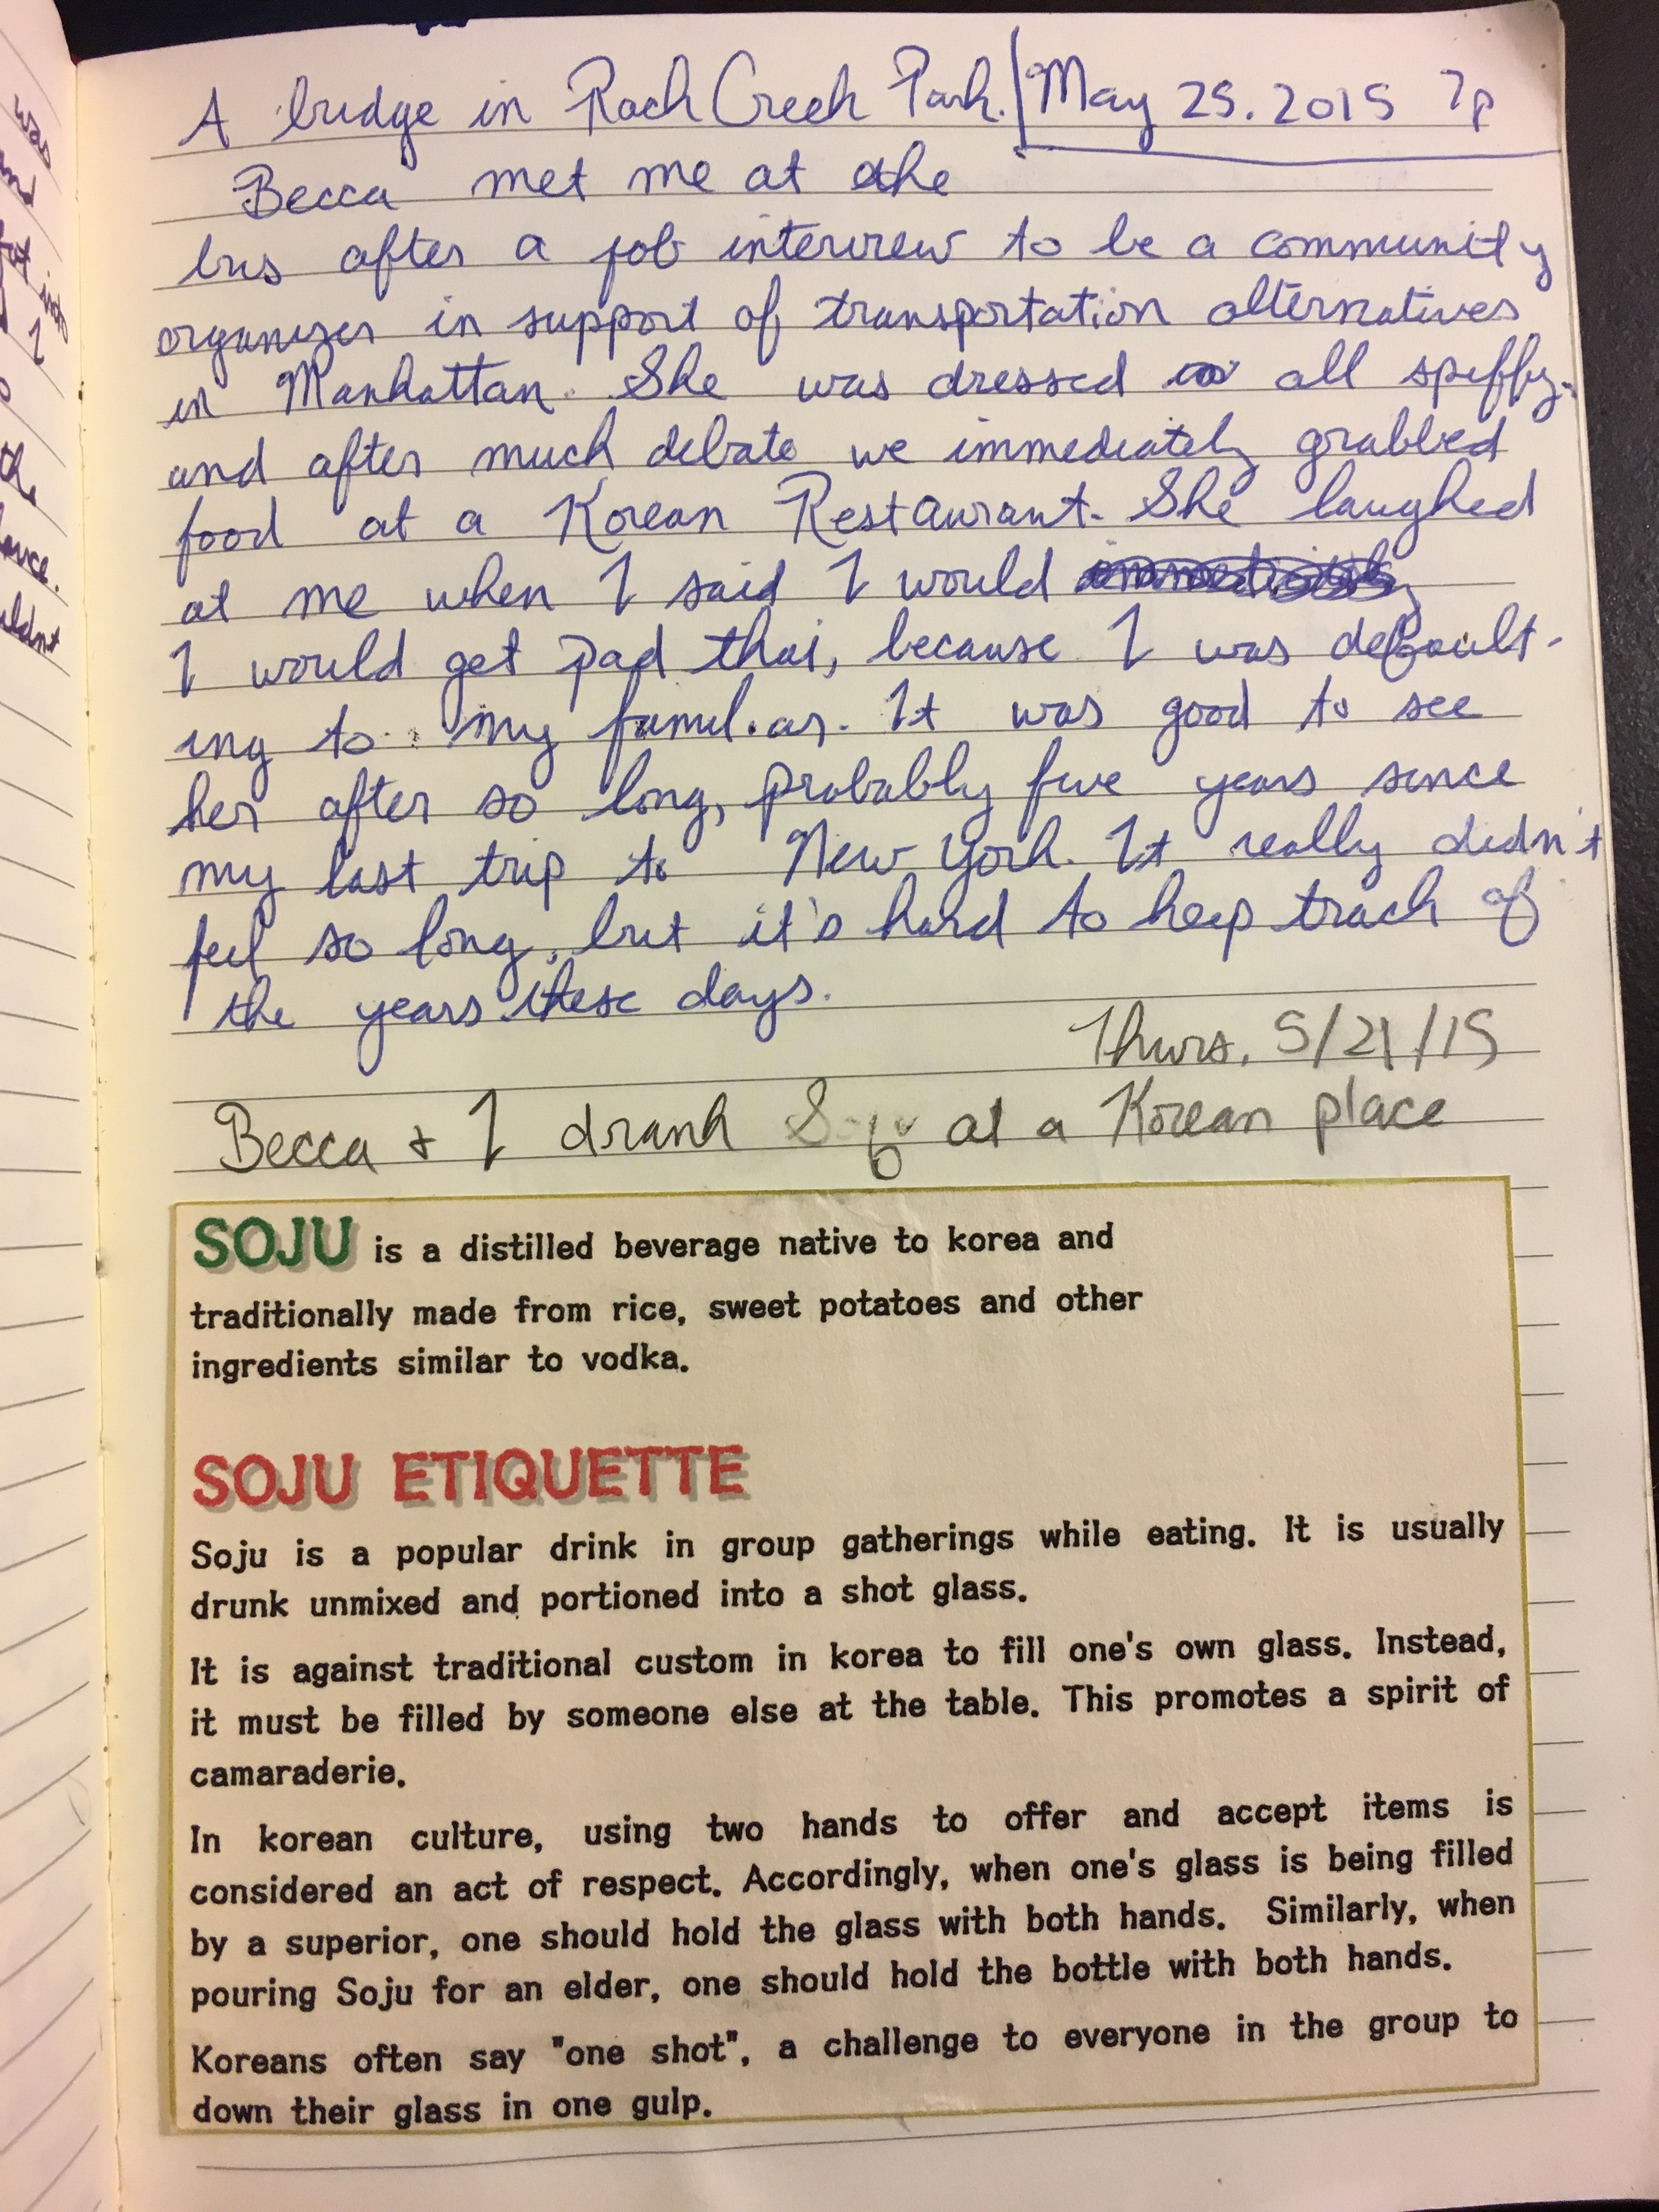 A bridge in Rock Creek Park. May 25. 2015 7p
Becca met me at the
bus after a job interview to be a community
organizer in support of transportation alternatives
in Manhattan. She was dressed all spiffy.
and after much debate we immediately grabbed
food at a Korean Restaurant. She laughed
at me when I said I would
I would get pad thai, because I was default-
ing to my familiar. It was good to see
her after so long, probably five years since
my last trip to New York. It really didn't
feel so long, but it's hard to keep track of
the years these days.
Thurs, 5/21/15
Becca + I drank Soju at a Korean place
SOJU is a distilled beverage native to korea and
traditionally made from rice, sweet potatoes and other
ingredients similar to vodka.
SOJU ETIQUETTE
Soju is a popular drink in group gatherings while eating. It is usually
drunk unmixed and portioned into a shot glass.
It is against traditional custom in korea to fill one's own glass. Instead,
it must be filled by someone else at the table. This promotes a spirit of
camaraderie.
In korean culture, using two hands to offer and accept items is
considered an act of respect. Accordingly, when one's glass is being filled
by a superior, one should hold the glass with both hands. Similarly, when
pouring Soju for an elder, one should hold the bottle with both hands.
Koreans often say "one shot", a challenge to everyone in the group to
down their glass in one gulp.